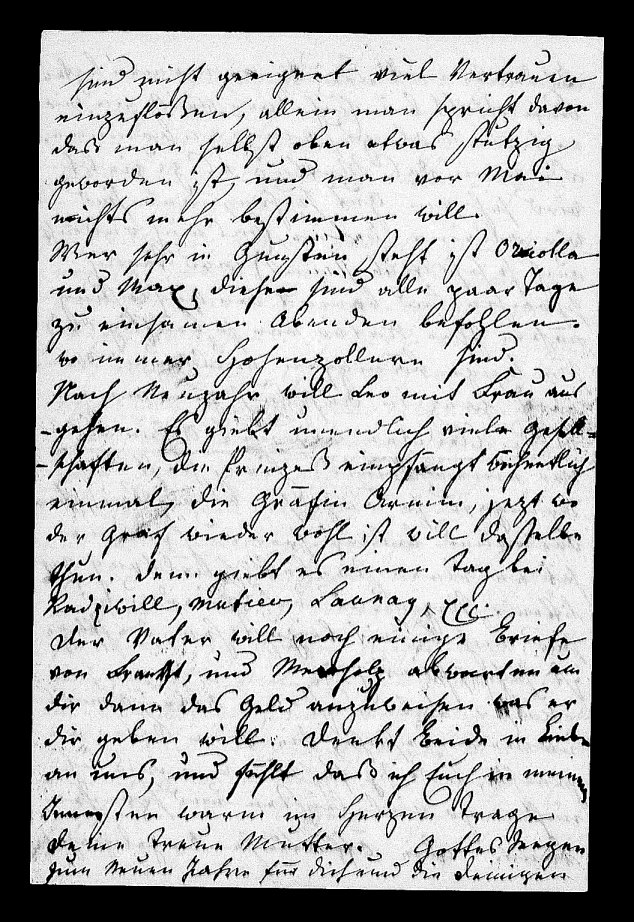 sind nicht geeignet viel Vertrauen
einzuflößen, allein man spricht davon
daß man selbst oben etwas stutzig
geworden ist, und man vor Mai
nichts mehr bestimmen will.
Wer sehr in Gunsten steht ist Oriolla
und Max, diese sind alle paar Tage
zu einsamen Abenden befohlen.
wo immer Hohenzollern sind.
Nach Neujahr will Leo mit Frau aus
-gehen. Es giebt unendlich viele Gesell=
-schaften, die Prinzeß empfängt wöchentlich
einmal, die Gräfin Arnim, jezt wo
der Graf wieder wohl ist will dasselbe
thun. dann giebt es einen Tag bei
Radziwill, Launay,
Der Vater will noch einige Briefe
von und abwarten um
dir dann das Geld anzuweisen was er
dir geben will. Denkt beide in Liebe
an uns, und fühlt daß ich Euch in meinem
Innersten warm im Herzen trage
Deine treue Mutter. Gottes Seegen
zum Neuen Jahre für dich und die Deinigen